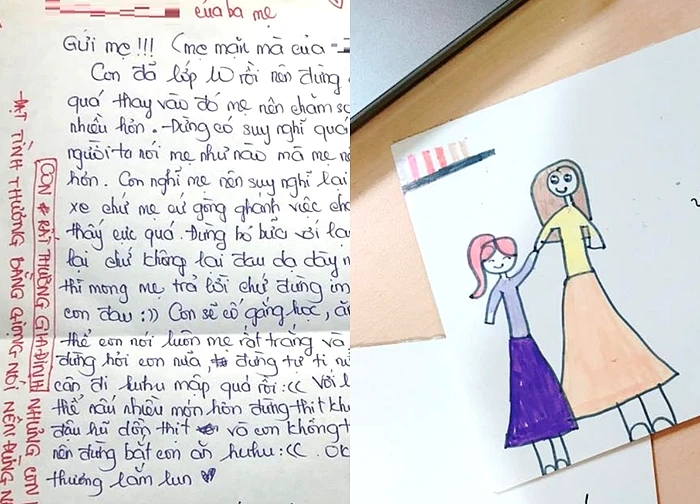 của ba mẹ
Gửi mẹ !!! (mẹ mặn mà của
Con đã lớp 10 rồi nên đừng
quá thay vào đó mẹ nên chăm
nhiều hơn. Đừng có suy nghĩ quá
người ta nói mẹ như nào mà mẹ
hơn. Con nghĩ mẹ nên suy nghĩ lại
xe chứ mẹ cứ gồng ghánh việc
thấy cực quá. Đừng bỏ bữa với
lại chứ không lại đau dạ dày
thì mong mẹ trả lời chứ đừng im
con đau :)) Con sẽ cố gắng học,
thể con nói luôn mẹ rất trắng và
đừng hỏi con nữa, đừng tự ti
cân đi huhu mập quá rồi :(( Với
thể nấu nhiều món hơn đừng thịt
đậu hũ dồn thịt và con không
nên đừng bắt con ăn huhu :((
thương lắm lun
CON RẤT THƯƠNG GIA ĐÌNH NHƯNG CON
TÍNH THƯỜNG BẰNG GIỌNG NÓI NÊN ĐỪNG